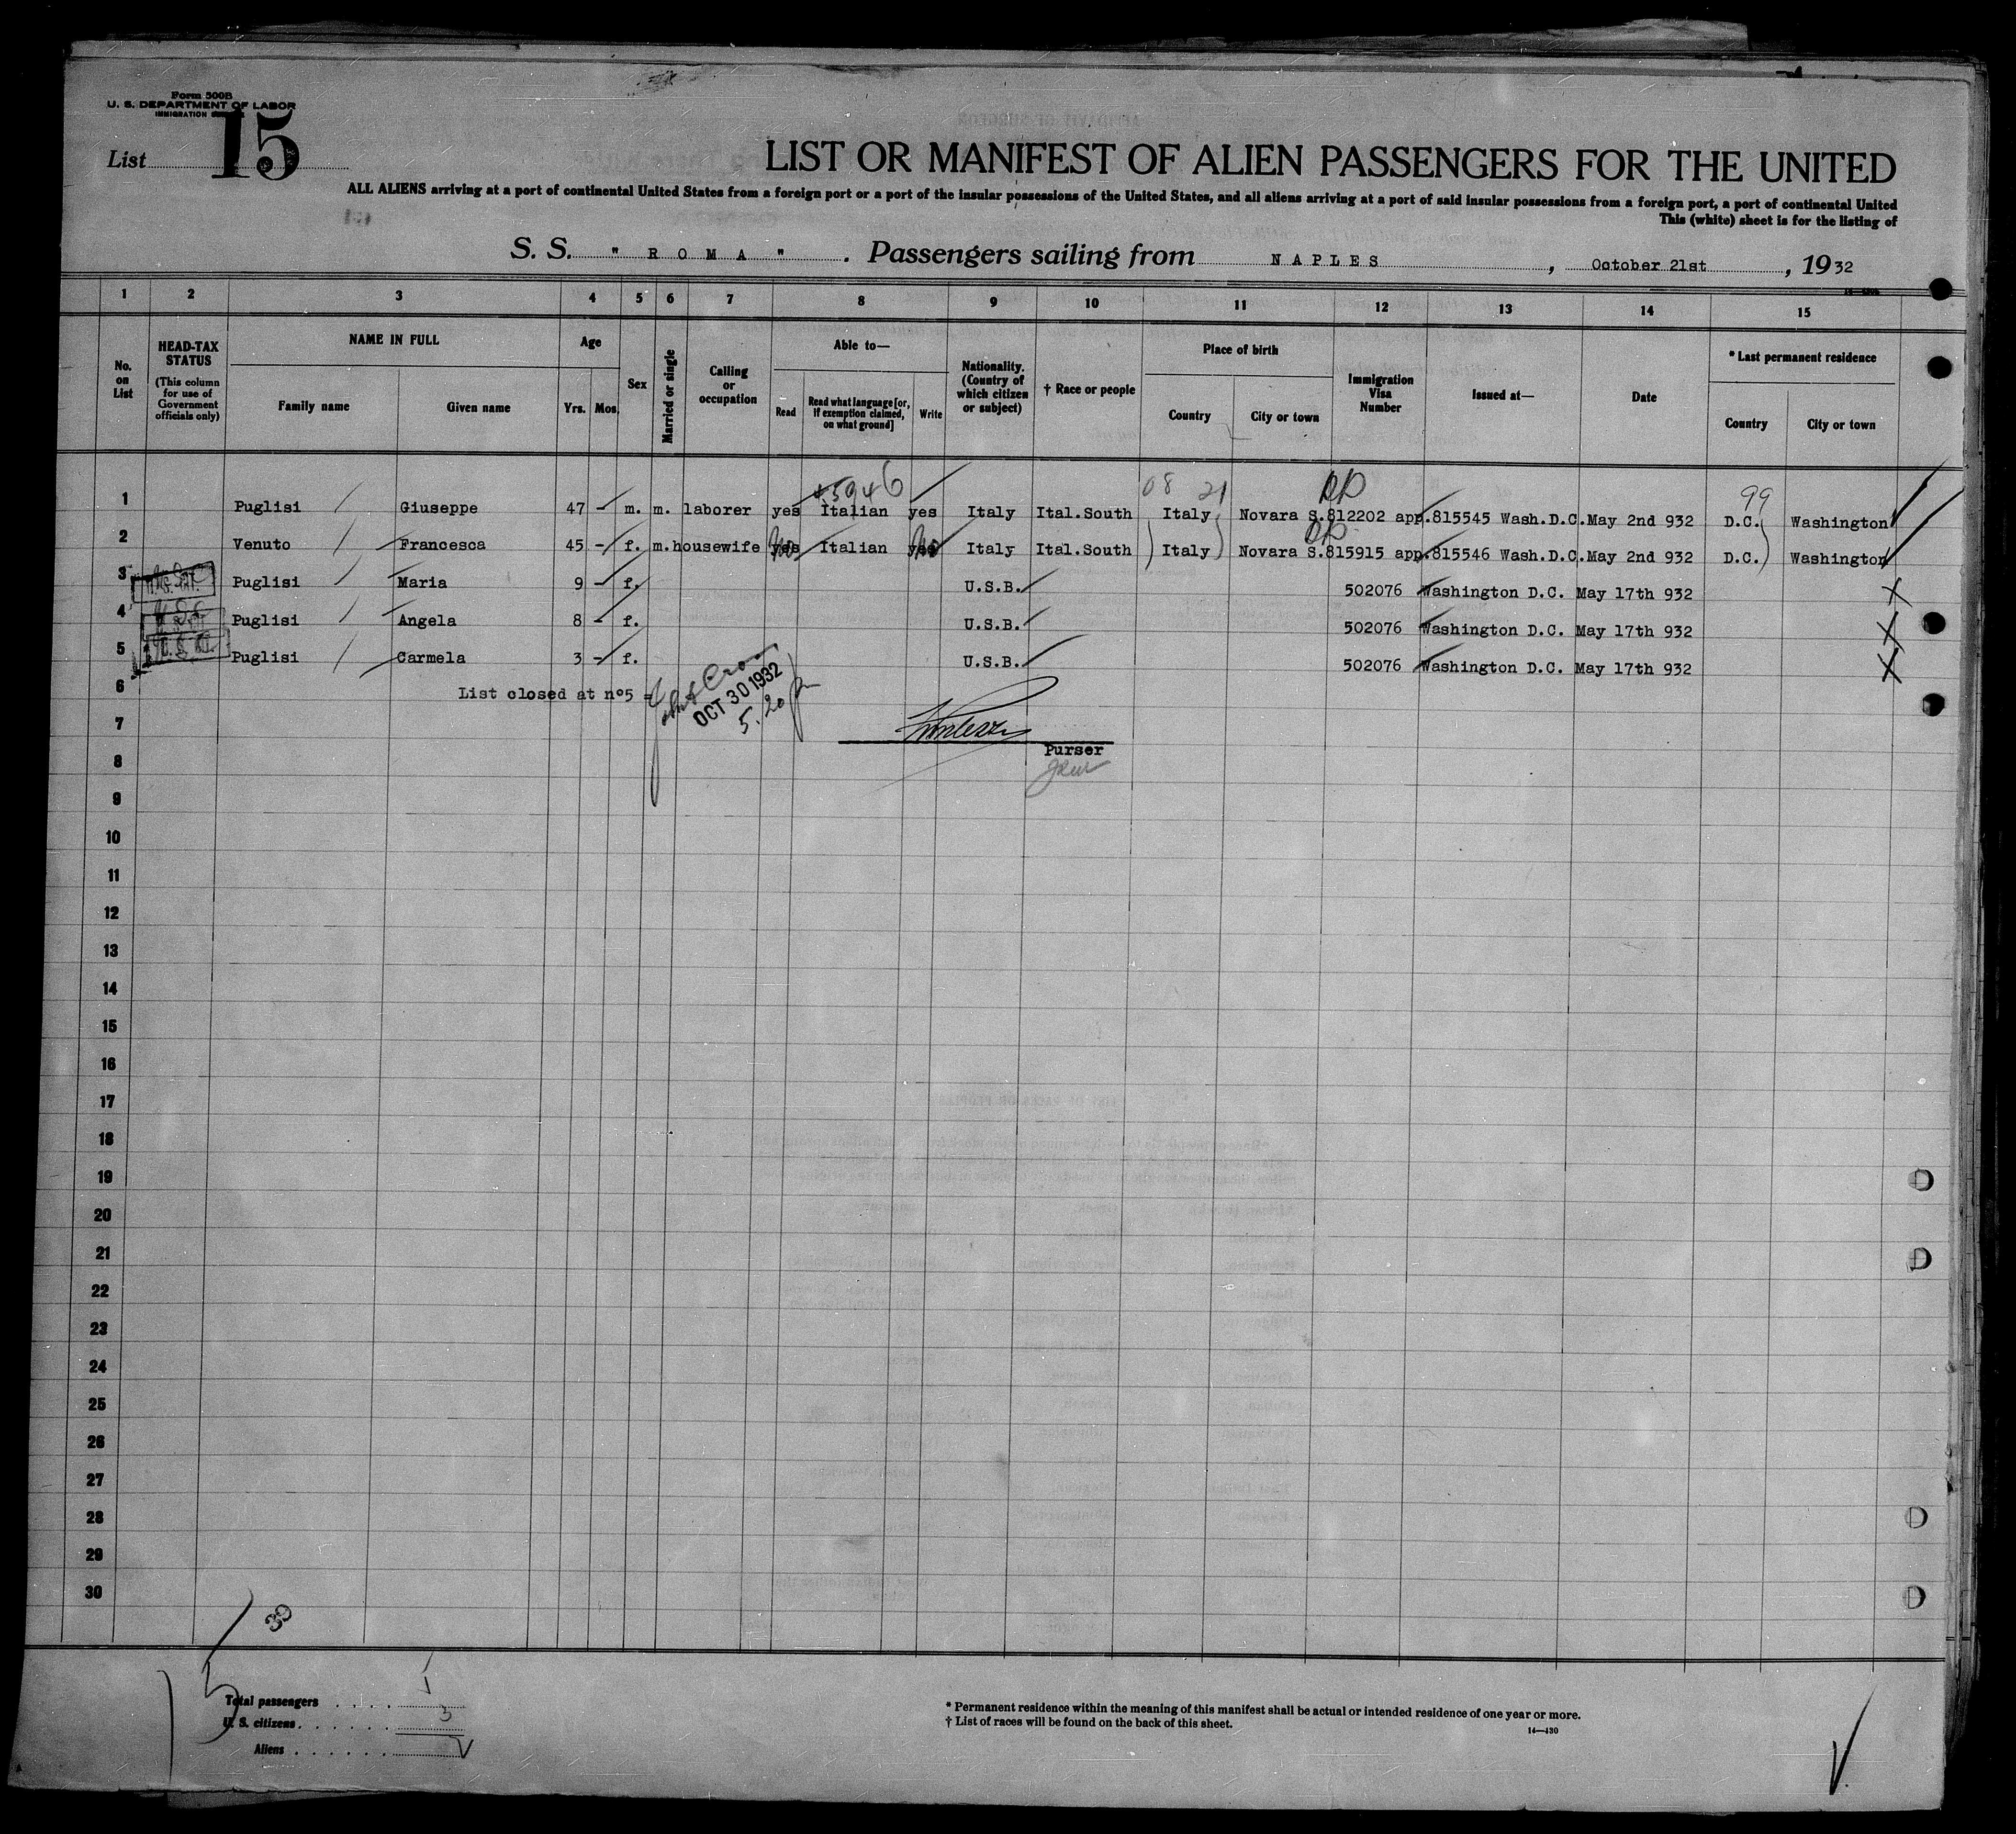 Form 500B
U. S. DEPARTMENT OF LABOR
IMMIGRATION
List 15
LIST OR MANIFEST OF ALIEN PASSENGERS FOR THE UNITED
ALL ALIENS arriving at a port of continental United States from a foreign port or a port of the insular possessions of the United States, and all aliens arriving at a port of said insular possessions from a foreign port, a port of continental United
This (white) sheet is for the listing of
S. S. " R O M A " . Passengers sailing from N A P L E S , October 21st , 1932
1 2 3 4 5 6 7 8 9 10 11 12 13 14 15
No. on List
HEAD-TAX STATUS (This column for use of Government officials only)
NAME IN FULL
Family name Given name
Age
Yrs. Mos.
Sex
Married or single
Calling or occupation
Able to—
Read
Read what language [or, if exemption claimed, on what ground]
Write
Nationality. (Country of which citizen or subject)
† Race or people
Place of birth
Country City or town
Immigration Visa Number
Issued at—
Date
* Last permanent residence
Country City or town
45946 08 21 99
1 Puglisi Giuseppe 47 - m. m. laborer yes Italian yes Italy Ital.South Italy Novara S. 812202 app.815545 Wash.D.C. May 2nd 932 D.C. Washington
2 Venuto Francesca 45 - f. m. housewife yes Italian yes Italy Ital.South Italy Novara S. 815915 app.815546 Wash.D.C. May 2nd 932 D.C. Washington
3 Puglisi Maria 9 - f. U.S.B. 502076 Washington D.C. May 17th 932
4 Puglisi Angela 8 - f. U.S.B. 502076 Washington D.C. May 17th 932
5 Puglisi Carmela 3 - f. U.S.B. 502076 Washington D.C. May 17th 932
6 List closed at n°5 =
OCT 30 1932
5.20
7
Purser
8
9
10
11
12
13
14
15
16
17
18
19
20
21
22
23
24
25
26
27
28
29
30
30
Total passengers
U. S. citizens 3
Aliens
* Permanent residence within the meaning of this manifest shall be actual or intended residence of one year or more.
† List of races will be found on the back of this sheet.
14—430